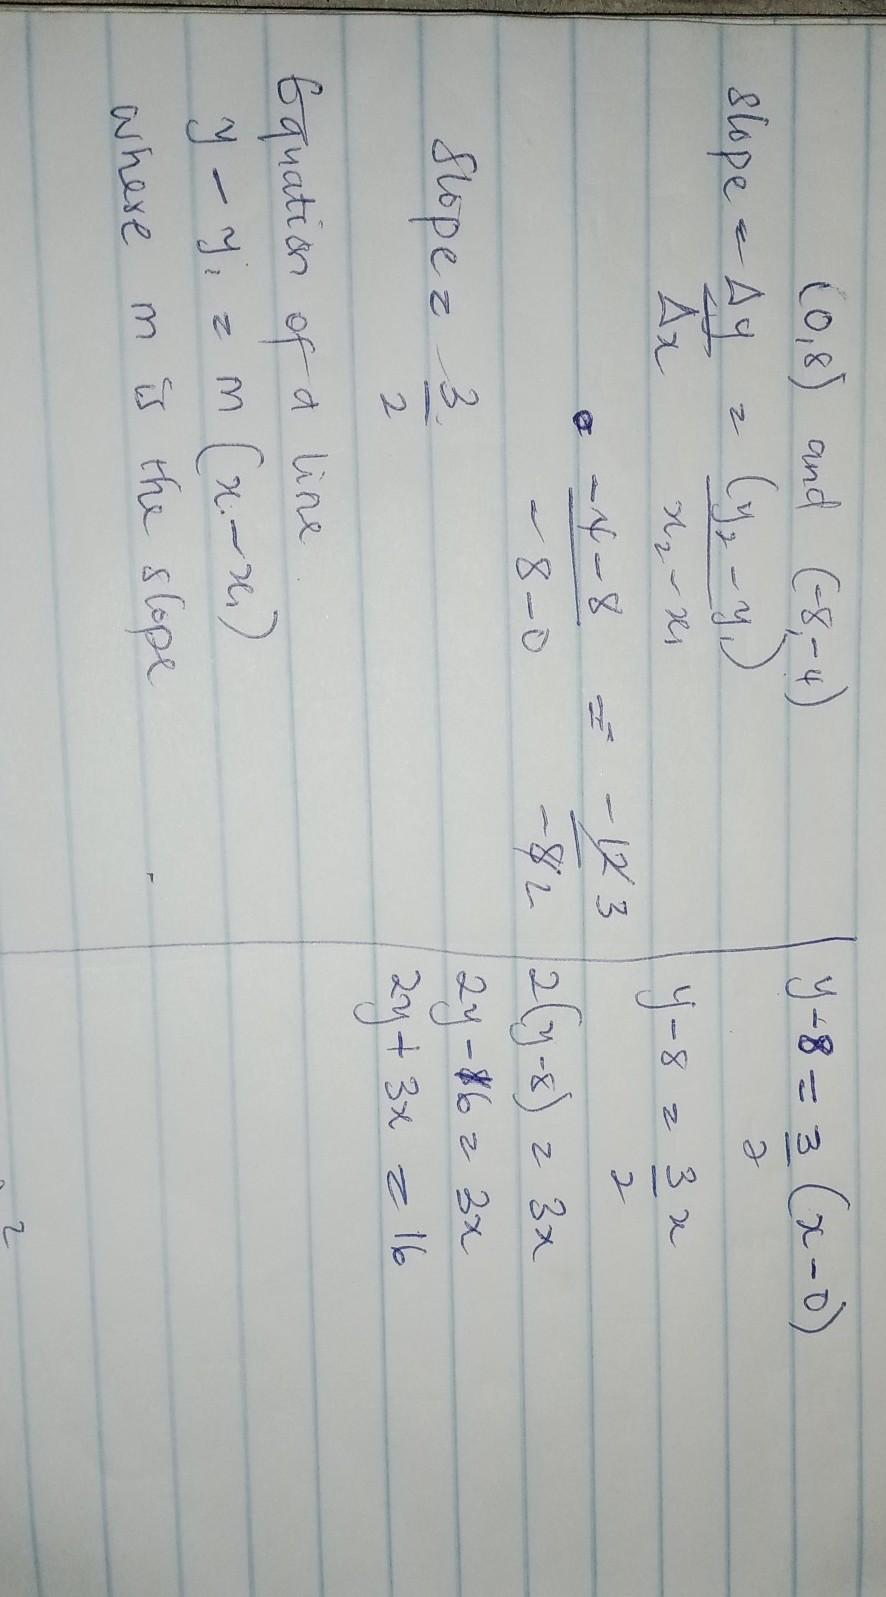 (0,8) and (-8,-4)
slope = Δy/Δx = (y₂ - y₁)/x₂ - x₁
-4-8/-8-0 = -12 3/-8 2
Slope = 3/2
Equation of a line
y - y₁ = m (x - x₁)
where m is the slope
y-8 = 3/2 (x-0)
y-8 = 3/2 x
2(y-8) = 3x
2y-16 = 3x
2y+3x = 16
2